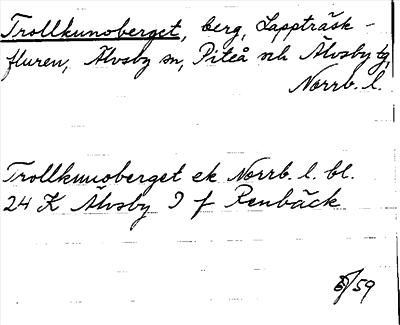 Trollkunoberget, berg, Lappträsk-
fluren, Älvsby sn, Piteå och Älvsby tg,
Norrb. l.
Trollkunoberget ek Norrb. l. bl.
24 K Älvsby 9 f Renbäck
/59